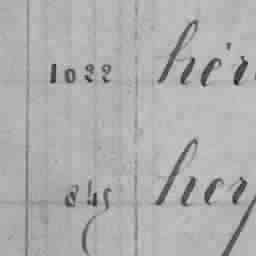 1022 hér
845 her